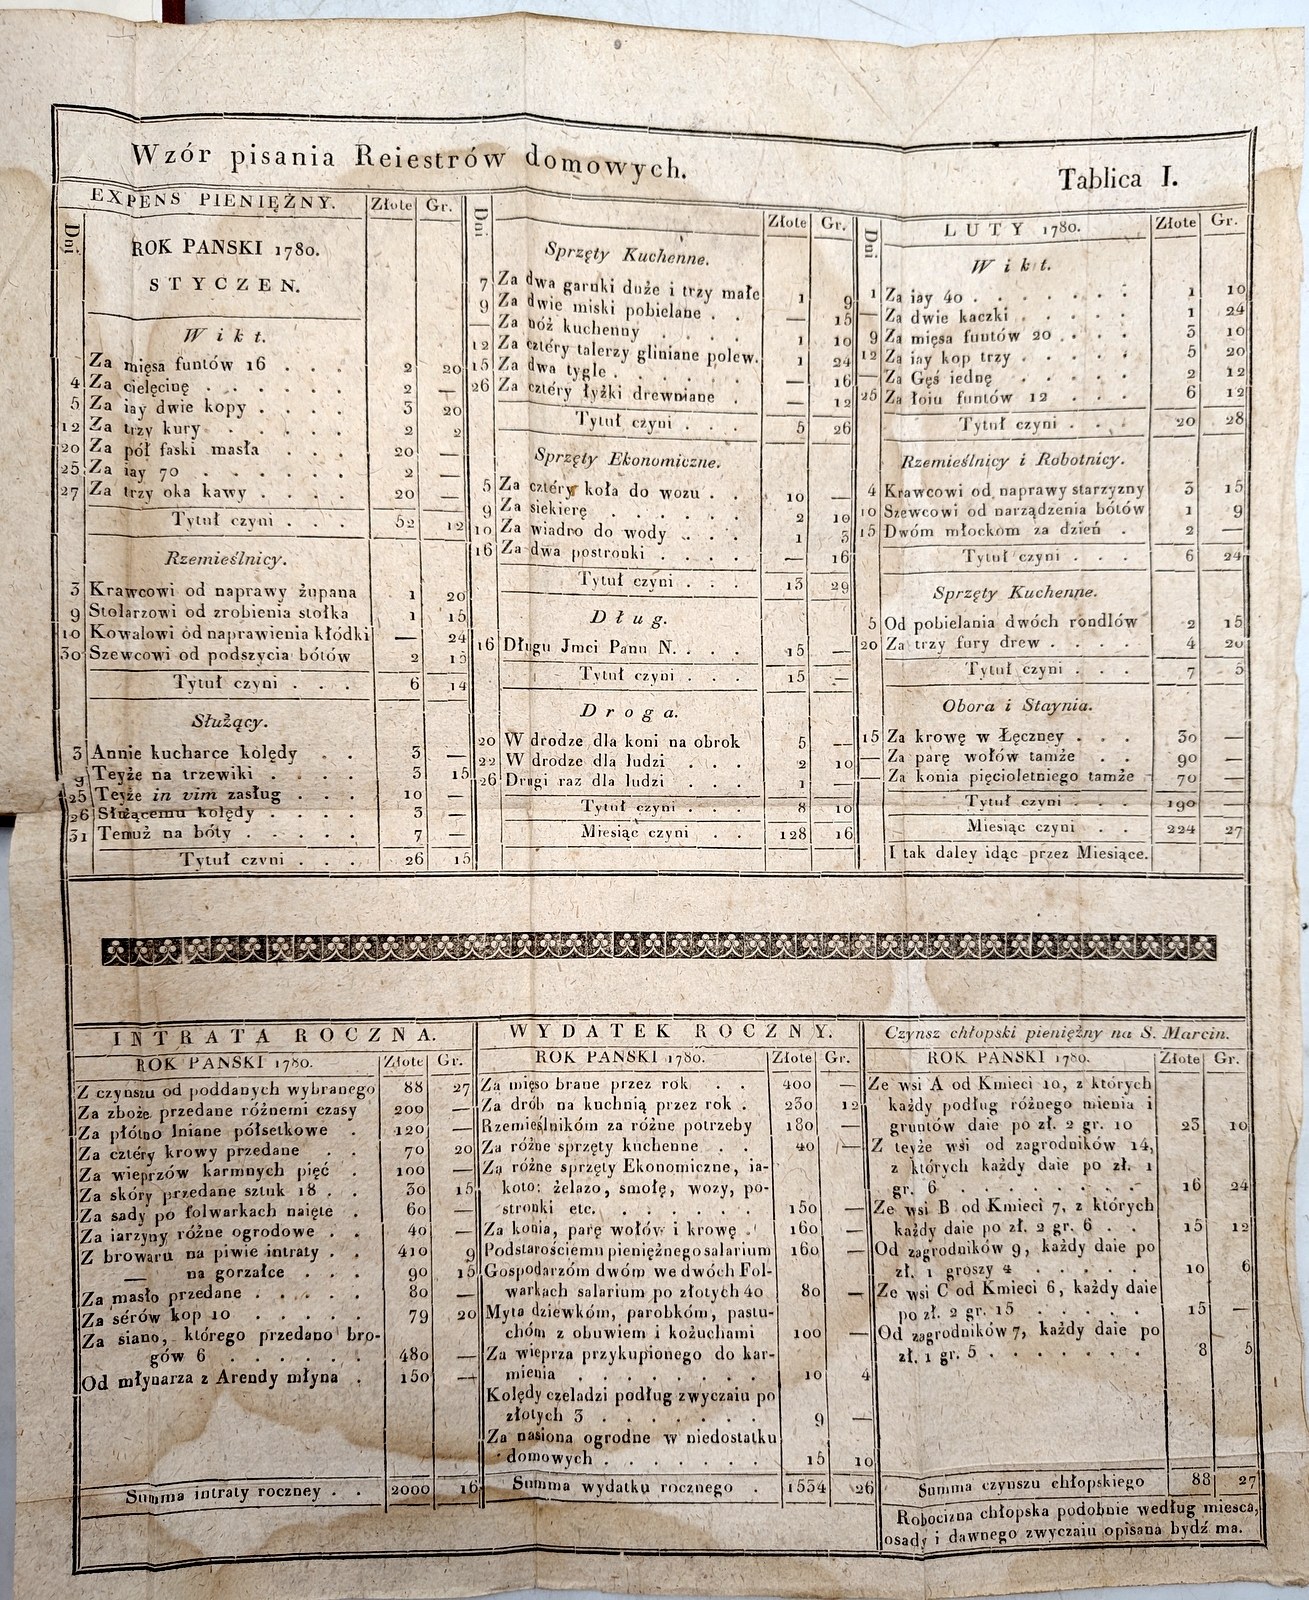 Wzór pisania Reiestrów domowych.
Tablica I.
EXPENS PIENIĘŻNY. Złote Gr.
Dni
ROK PANSKI 1780.
STYCZEN.
Wikt.
Za mięsa funtów 16 . . . 2 20
4 Za cielęcinę . . . . . . 2 —
5 Za iay dwie kopy . . . . 3 20
12 Za trzy kury . . . . . 2 2
20 Za pół faski masła . . . 20 —
25 Za iay 70 . . . . . . 2 —
27 Za trzy oka kawy . . . . 20 —
Tytuł czyni . . . 52 12
Rzemieślnicy.
3 Krawcowi od naprawy żupana 1 20
9 Stolarzowi od zrobienia stołka 1 15
10 Kowalowi od naprawienia kłódki — 24
30 Szewcowi od podszycia bótów 2 15
Tytuł czyni . . . 6 14
Służący.
3 Annie kucharce kolędy . 3 —
9 Teyże na trzewiki . . . . 3 15
25 Teyże in vim zasług . . . 10 —
26 Służącemu kolędy . . . . 3 —
31 Temuż na bóty . . . . . 7 —
Tytuł czyni . . . 26 15
Dni Złote Gr.
Sprzęty Kuchenne.
7 Za dwa garnki duże i trzy małe 1 9
9 Za dwie miski pobielane . . — 15
— Za nóż kuchenny . . . . 1 10
12 Za cztéry talerzy gliniane polew. 1 24
15 Za dwa tygle . . . . . . — 16
26 Za cztéry łyżki drewniane . — 12
Tytuł czyni . . . 5 26
Sprzęty Ekonomiczne.
5 Za cztéry koła do wozu . . 10 —
9 Za siekierę . . . . . . 2 10
10 Za wiadro do wody . . . 1 3
16 Za dwa postronki . . . . — 16
Tytuł czyni . . . 13 29
Dług.
16 Długu Jmci Panu N. . . . 15 —
Tytuł czyni . . . 15 —
Droga.
20 W drodze dla koni na obrok 5 —
22 W drodze dla ludzi . . . 2 10
26 Drugi raz dla ludzi . . . 1 —
Tytuł czyni . . . 8 10
Miesiąc czyni . . 128 16
Dni LUTY 1780. Złote Gr.
Wikt.
1 Za iay 40 . . . . . . . 1 10
— Za dwie kaczki . . . . . 1 24
9 Za mięsa funtów 20 . . . . 3 10
12 Za iay kop trzy . . . . . 5 20
— Za Gęś iednę . . . . . 2 12
25 Za łoiu funtów 12 . . . 6 12
Tytuł czyni . . . 20 28
Rzemieślnicy i Robotnicy.
4 Krawcowi od naprawy starzyzny 3 15
10 Szewcowi od narządzenia bótów 1 9
15 Dwóm młockom za dzień . 2 —
Tytuł czyni . . . 6 24
Sprzęty Kuchenne.
5 Od pobielania dwóch rondlów 2 15
20 Za trzy fury drew . . . . 4 20
Tytuł czyni . . . 7 5
Obora i Staynia.
15 Za krowę w Łęczney . . . 30 —
— Za parę wołów tamże . . 90 —
— Za konia pięcioletniego tamże 70 —
Tytuł czyni . . . 190 —
Miesiąc czyni . . 224 27
I tak daley idąc przez Miesiące.
INTRATA ROCZNA.
ROK PANSKI 1780. Złote Gr.
Z czynszu od poddanych wybranego 88 27
Za zboże przedane różnemi czasy 200 —
Za płótno lniane półsetkowe . 120 —
Za cztéry krowy przedane . . 70 20
Za wieprzów karmnych pięć . 100 —
Za skóry przedane sztuk 18 . . 30 15
Za sady po folwarkach naięte . 60 —
Za iarzyny różne ogrodowe . . 40 —
Z browaru na piwie intraty . . 410 9
— na gorzałce . . . 90 15
Za masło przedane . . . . . 80 —
Za sérów kop 10 . . . . . 79 20
Za siano, którego przedano bro-
gów 6 . . . . . . 480 —
Od młynarza z Arendy młyna . 150 —
Summa intraty roczney . . 2000 16
WYDATEK ROCZNY.
ROK PANSKI 1780. Złote Gr.
Za mięso brane przez rok . . 400 —
Za drób na kuchnią przez rok . 230 12
Rzemieślnikóm za różne potrzeby 180 —
Za różne sprzęty kuchenne . . 40 —
Za różne sprzęty Ekonomiczne, ia-
koto: żelazo, smołę, wozy, po-
stronki etc. . . . . . . 150 —
Za konia, parę wołów i krowę . 160 —
Podstarościemu pieniężnego salarium 160 —
Gospodarzóm dwóm we dwóch Fol-
warkach salarium po złotych 40 80 —
Myta dziewkóm, parobkóm, pastu-
chóm z obuwiem i kożuchami 100 —
Za wieprza przykupionego do kar-
mienia . . . . . . . . 10 4
Kolędy czeladzi podług zwyczaiu po
złotych 3 . . . . . . . 9 —
Za nasiona ogrodne w niedostatku
domowych . . . . . . . 15 10
Summa wydatku rocznego . 1534 26
Czynsz chłopski pieniężny na S. Marcin.
ROK PANSKI 1780. Złote Gr.
Ze wsi A od Kmieci 10, z których
każdy podług różnego mienia i
gruntów daie po zł. 2 gr. 10 23 10
Z teyże wsi od zagrodników 14,
z których każdy daie po zł. 1
gr. 6 . . . . . . . . 16 24
Ze wsi B od Kmieci 7, z których
każdy daie po zł. 2 gr. 6 . . 15 12
Od zagrodników 9, każdy daie po
zł. 1 groszy 4 . . . . . 10 6
Ze wsi C od Kmieci 6, każdy daie
po zł. 2 gr. 15 . . . . . 15 —
Od zagrodników 7, każdy daie po
zł. 1 gr. 5 . . . . . . . 8 5
Summa czynszu chłopskiego 88 27
Robocizna chłopska podobnie według miesca,
osady i dawnego zwyczaiu opisana bydź ma.